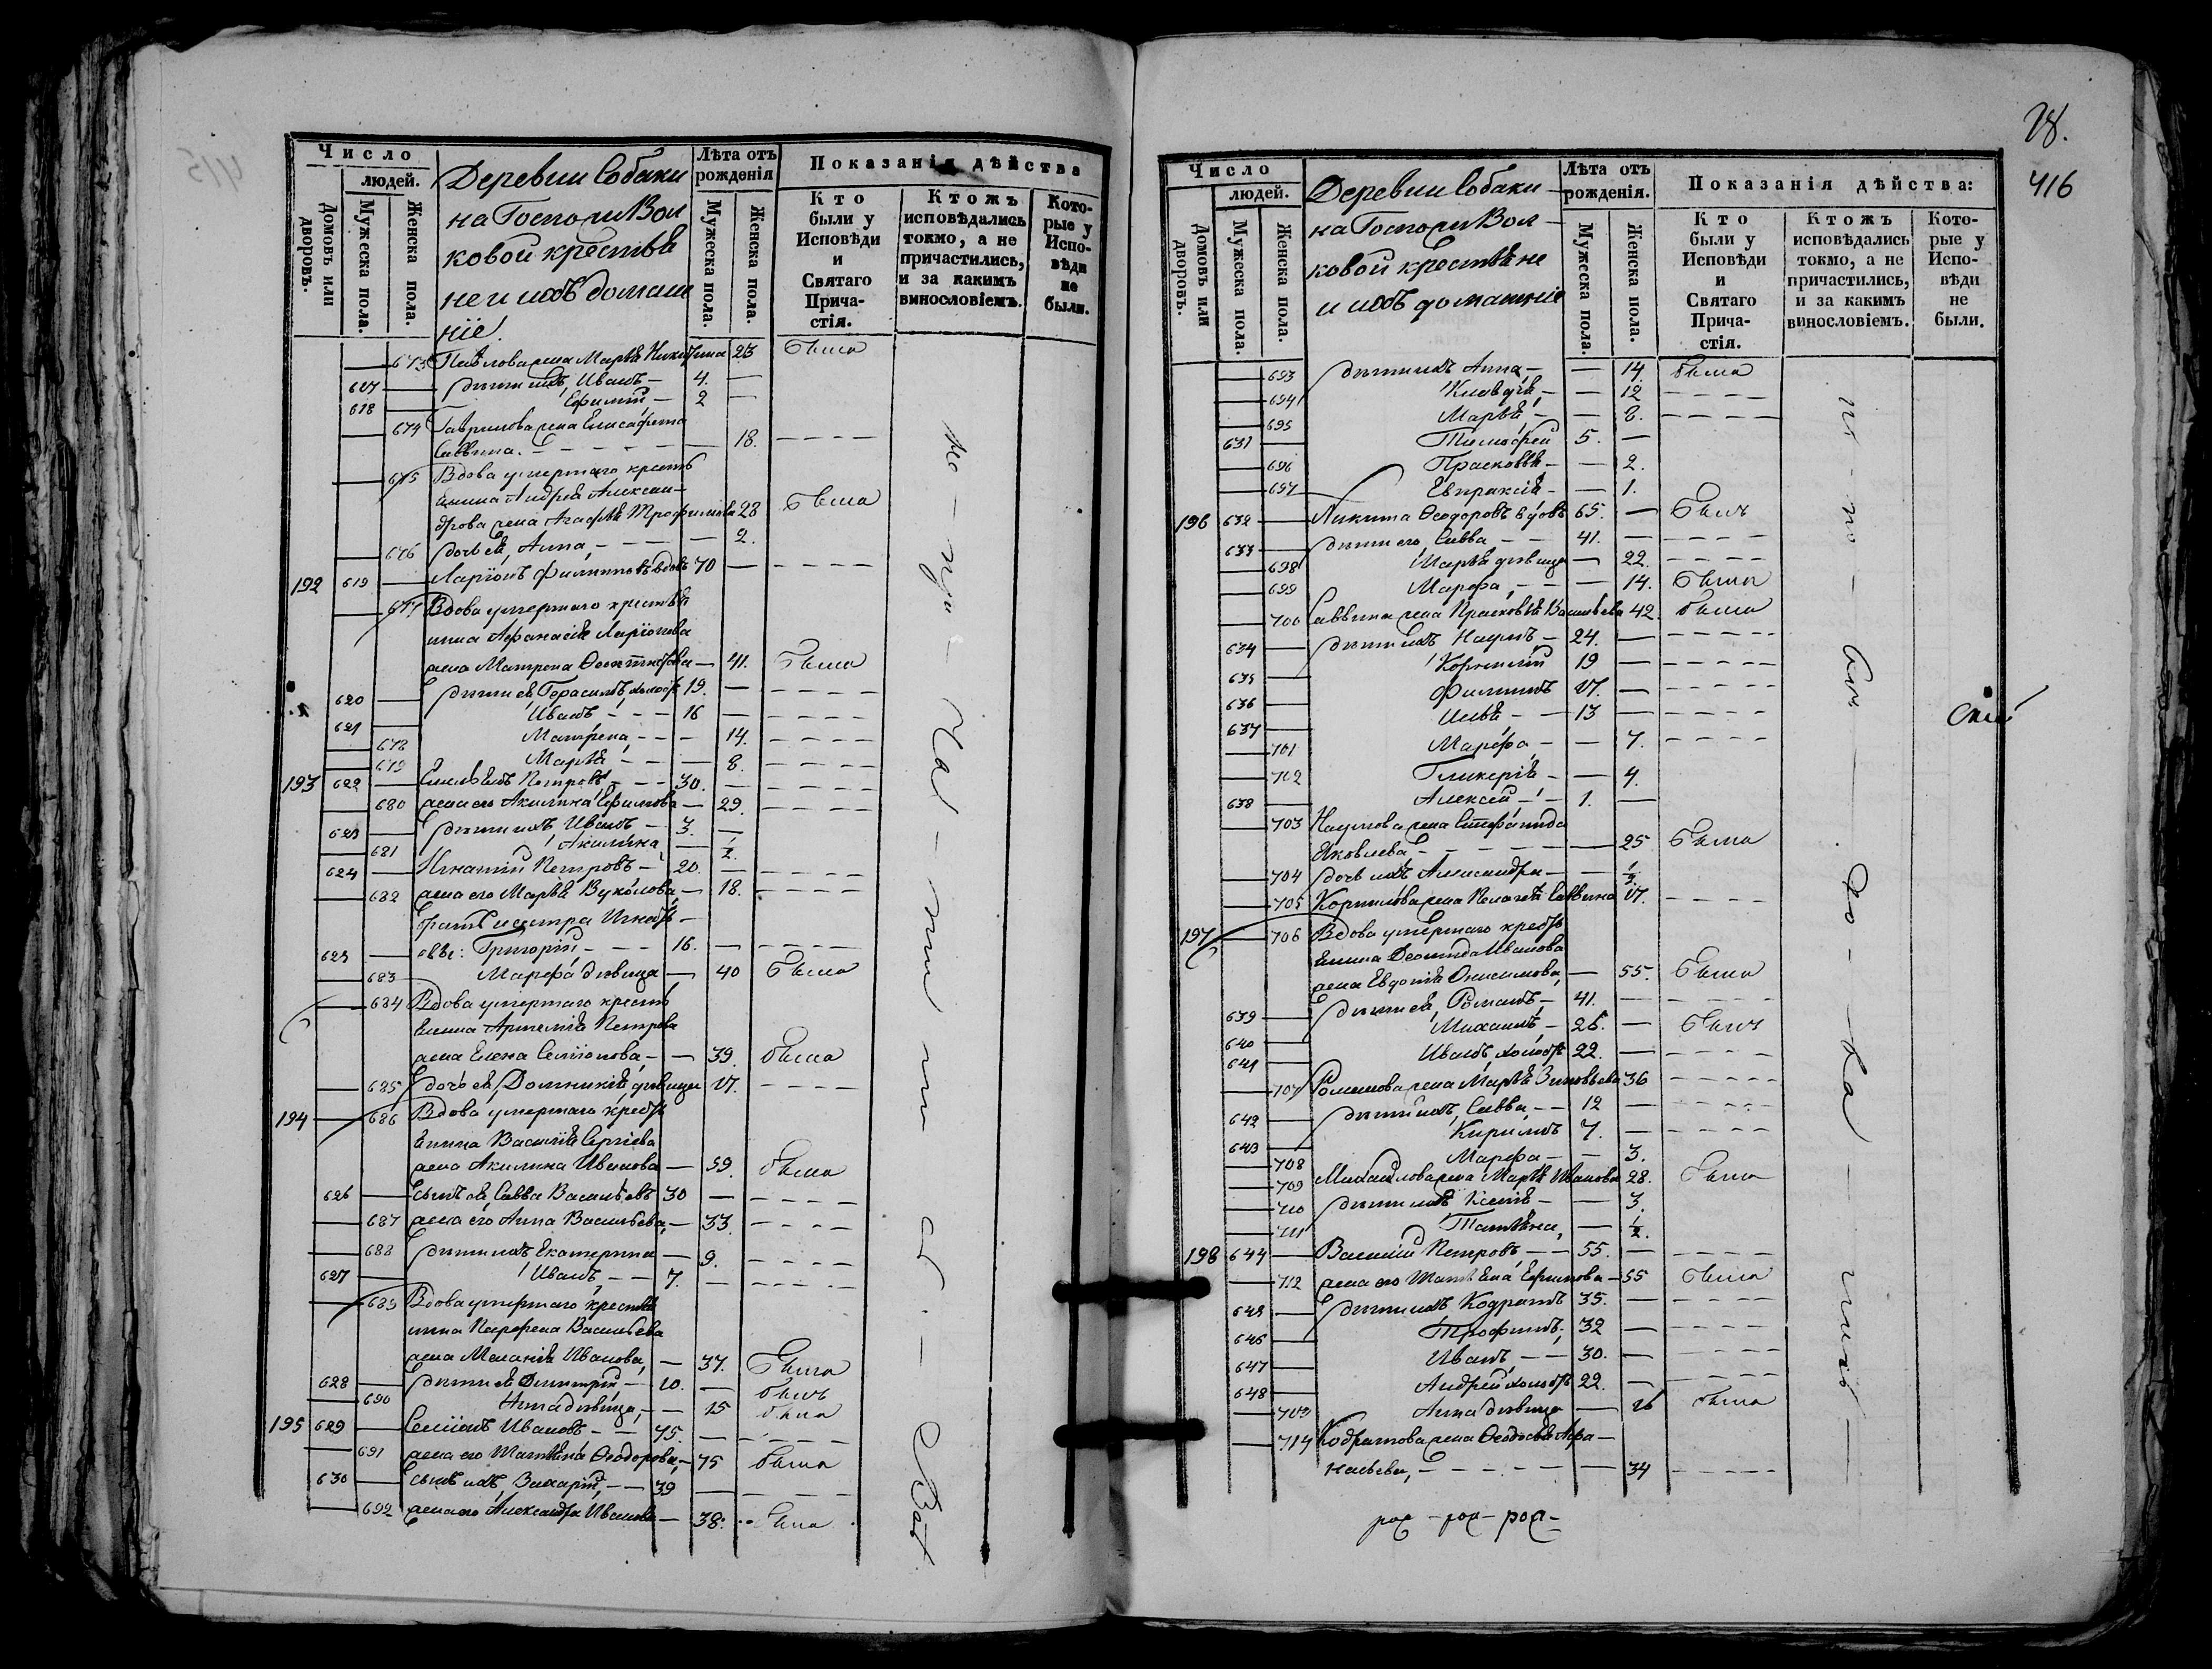 415
Число
людей.
Домовъ или дворовъ.
Мужеска пола.
Женска пола.
Деревни Собаки
на Госпожи Вол
ковой крестья
не и ихъ домаш
ніе.
Лѣта отъ рожденія
Мужеска пола.
Женска пола.
Показанія дѣйства
Кто были у Исповѣди и Святаго Причастія.
Ктожъ исповѣдались токмо, а не причастились, и за какимъ винословіемъ.
Которые у Исповѣди не были.
673 Павлова жена Марья Никитина 23 была
617 дѣти ихъ, Иванъ 4.
618 Ефимій 2
674 Гаврилова жена Елисавета
Саввина. 18.
675 Вдова умершаго кресть
янина Андрея Алексан-
дрова жена Агафья Трофимова 28 была
676 дочь ея, Анна 2.
192 619 Ларіонъ Филиповъ вдовъ 70
677 Вдова умершаго крестья
нина Афанасія Ларіонова
жена Матрена 41. была
620 дѣти ея, Герасимъ, холостъ 19.
621 Иванъ 16
678 Матрена 14.
679 Марья 8.
193 622 Емельянъ Петровъ 30.
680 жена его Акилина Ефимова 29.
623 дѣти ихъ, Иванъ 3.
681 Акилина 1/2.
624 Игнатій Петровъ 20.
682 жена его Марья Вуколова 18.
братъ и сестра Игнать-
евы: Григорій 16.
683 Марфа дѣвица 40 была
684 Вдова умершаго кресть
янина Артемія Петрова
жена Елена Семіонова 39. была
685 дочь ея, Домникія дѣвица 17.
194 686 Вдова умершаго кресть
янина Василія Сергіева
жена Акилина Иванова 59. была
626 сынъ ея Савва Васильевъ 30
687 жена его Анна Васильева 33.
688 дѣти ихъ Екатерина 9.
627 Иванъ 7.
689 Вдова умершаго крестья
нина Парфена Васильева
жена Меланія Иванова 37. была
628 дѣти ея Димитрій 10. былъ
690 Анна дѣвица 15 была
195 629 Семіонъ Ивановъ 75.
691 жена его Татьяна Ѳеодорова 75 была
630 сынъ ихъ, Захарій 39
692 жена его Александра Иванова 38. была
28.
416
Число
людей.
Домовъ или дворовъ.
Мужеска пола.
Женска пола.
Деревни Собаки
на Госпожи Вол
ковой крестьяне
и ихъ домашніе
Лѣта отъ рожденія.
Мужеска пола.
Женска пола.
Показанія дѣйства:
Кто были у Исповѣди и Святаго Причастія.
Ктожъ исповѣдались токмо, а не причастились, и за какимъ винословіемъ.
Которые у Исповѣди не были.
693 дѣти ихъ Анна 14. была
694 Клавдія 12
695 Марья 8.
631 Тимофей 5.
696 Прасковья 2.
697 Евпраксія 1.
196 632 Никита Ѳеодоровъ вдовъ 65. былъ
633 дѣти его, Савва 41.
698 Марья дѣвица 22.
699 Марфа 14. была
700 Саввина жена Прасковья Васильева 42. была
634 дѣти ихъ Наумъ 24.
635 Корнилій 19
636 Филипъ 17.
637 Илья 13
701 Марфа 7.
702 Гликерія 4.
638 Алексей 1.
703 Наумова жена Стефанида
Яковлева 25 была
704 дочь ихъ Александра 1/2
705 Корнилова жена Пелагея Саввина 17.
197 706 Вдова умершаго кресть
янина Леонтія Иванова
жена Евдокія Онисимова 55. была
639 дѣти ея, Романъ 41.
640 Михаилъ 26. былъ
641 Иванъ, холостъ 22.
707 Романова жена Марья Зиновьева 36
642 дѣти ихъ, Савва 12
643 Кирилъ 7.
708 Марфа 3.
709 Михайлова жена Марья Иванова 28. была
710 дѣти ихъ Ксенія 3.
711 Татьяна 1/2.
198 644 Василій Петровъ 55.
712 жена его Татьяна Ефимова 55 была
645 дѣти ихъ Кодратъ 35.
646 Трофимъ 32
647 Иванъ 30.
648 Андрей холостъ 22.
713 Анна дѣвица 16 была
714 Кодратова жена Ѳеодосья Афа-
насьева, 34